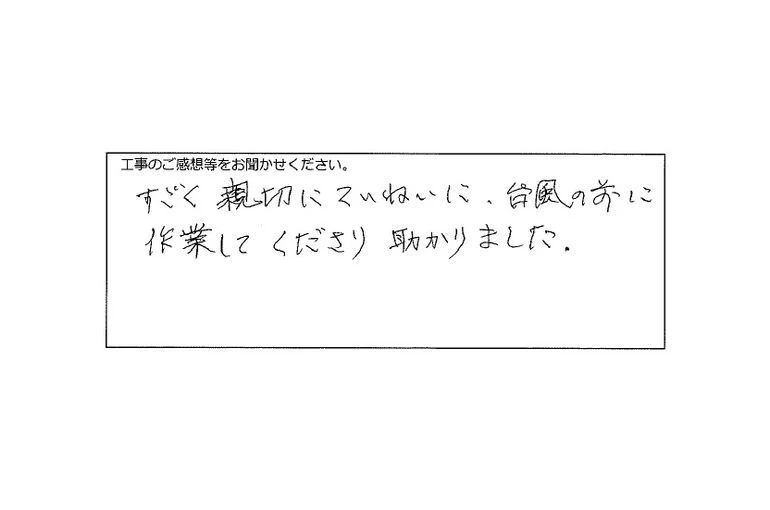 工事のご感想等をお聞かせください。
すごく親切にていねいに、台風の前に
作業してくださり助かりました。